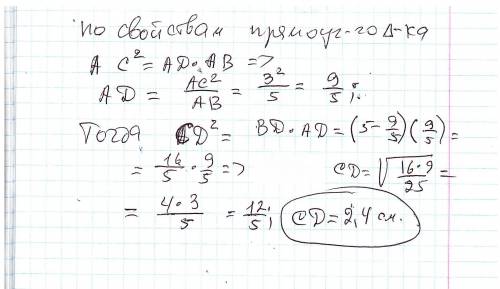 по свойствам прямоуг-го Δ-ка
AC² = AD·AB =>
AD = AC²/AB = 3²/5 = 9/5;
Тогда CD² = BD·AD = (5-9/5)(9/5) =
= 16/5 · 9/5 => CD = √(16·9/25) =
= 4·3/5 = 12/5; CD = 2,4 см.